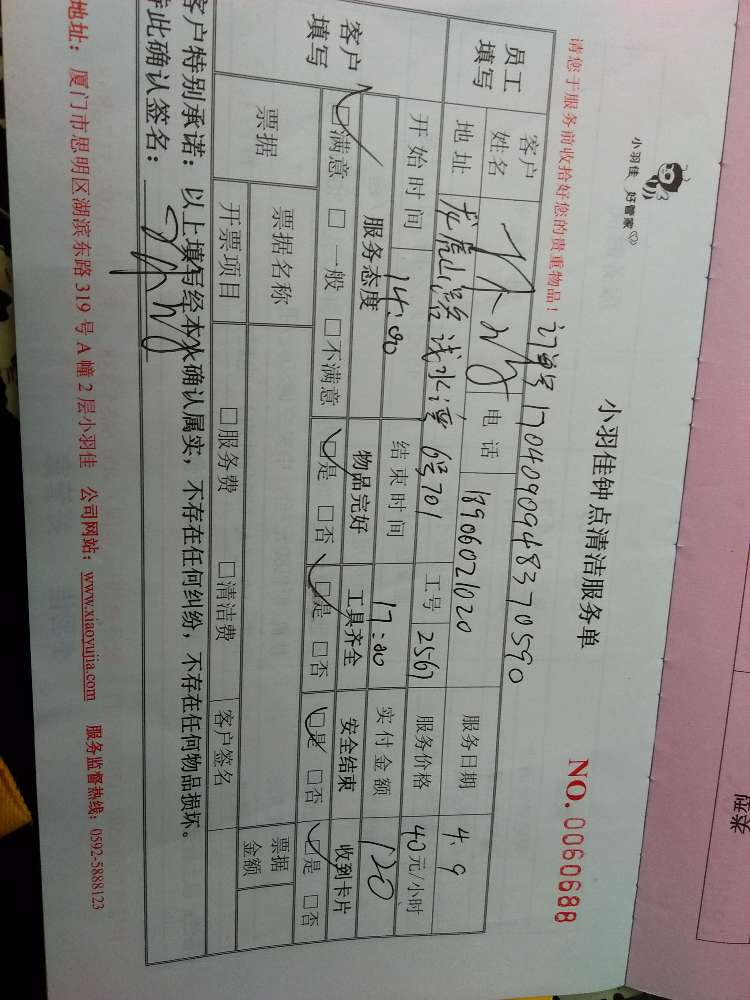 小羽佳 好管家
小羽佳钟点清洁服务单
NO. 0060688
请您于服务前收拾好您的贵重物品! 订单号 17040909483 70590
员工填写 客户姓名 电话 18906021020 服务日期 4.9
地址 龙虎山路浅水湾 6号701 工号 2567 服务价格 40元/小时
客户填写 开始时间 14:00 结束时间 17:00 实付金额 120
服务态度 物品完好 工具齐全 安全结束 收到卡片
☑满意 □一般 □不满意 ☑是 □否 ☑是 □否 ☑是 □否 ☑是 □否
票据 票据名称 票据金额
开票项目 □服务费 □清洁费 客户签名
客户特别承诺:以上填写经本人确认属实,不存在任何纠纷,不存在任何物品损坏。
特此确认签名:
地址:厦门市思明区湖滨东路 319 号 A 幢 2 层小羽佳 公司网站:www.xiaoyujia.com 服务监督热线:0592-5888123